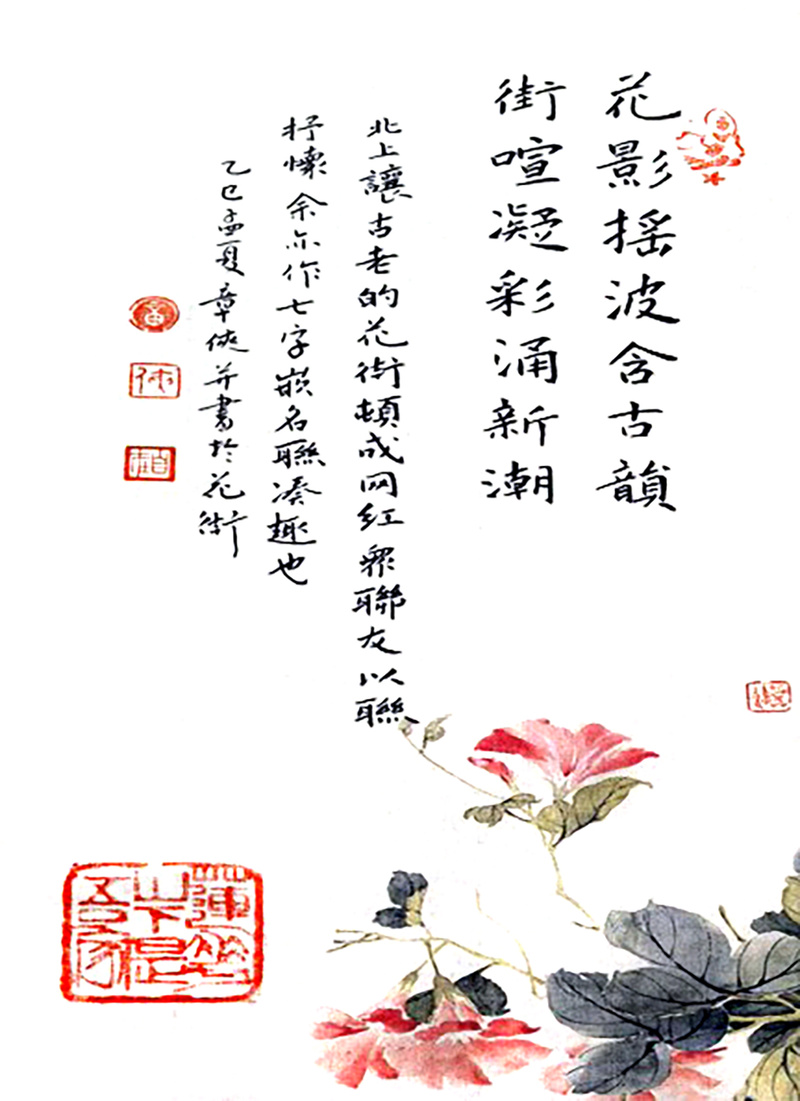 花影摇波含古韻
街喧凝彩涌新潮
北上讓古老的花街頓成网红衆聯友以聯
抒懷余亦作七字嵌名聯凑趣也
乙巳孟夏章俠并書於花街
蓮花
山下是
吾家